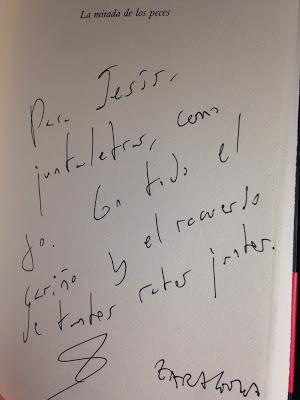 La mirada de los peces
Para Jesús,
juntaletras, como
yo. Con todo el
cariño y el recuerdo
de tantos ratos juntos.
ZARAGOZA